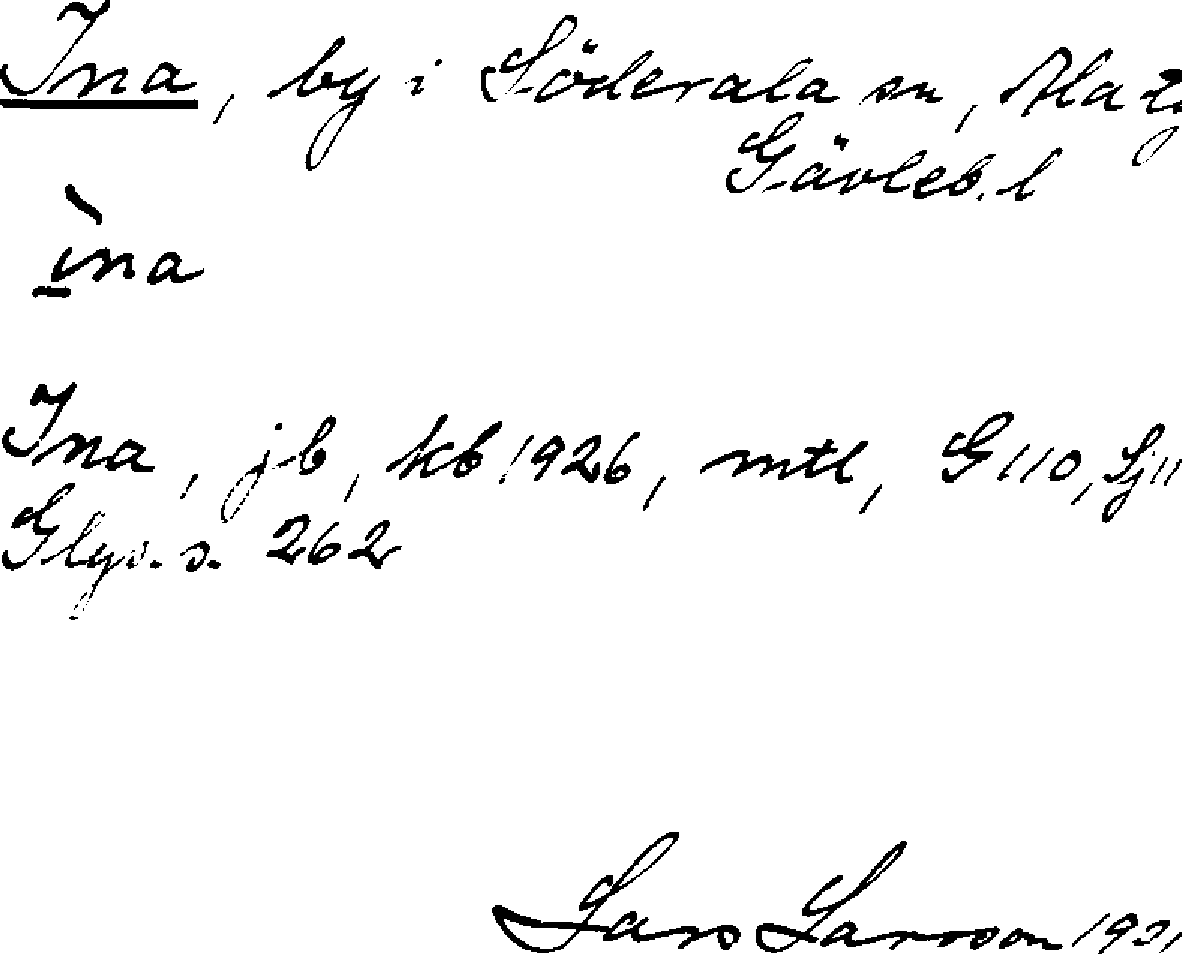 Ina, by i Söderala sn, Ala tg
Gävleb. l
ìna
Ina, jb, kb 1926, mtl, G 110, Sj 11
Glys. s. 262
Lars Larsson